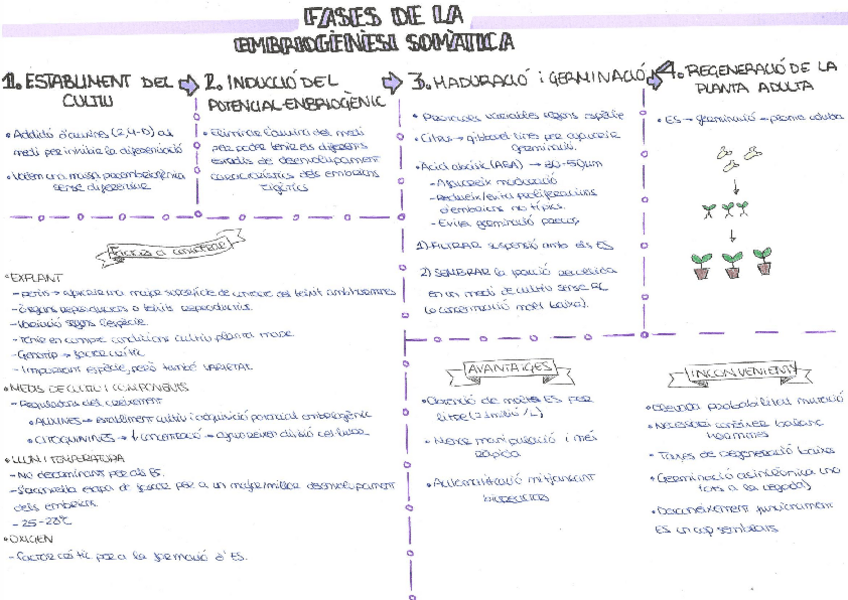 FASES DE LA
EMBRIOGÈNESI SOMÀTICA
1. ESTABLIMENT DEL
CULTIU
• Addició d'auxines (2,4-D) al
medi per inhibir la diferenciació
• Volem una massa proembriogènica
sense diferenciar
2. INDUCCIÓ DEL
POTENCIAL EMBRIOGÈNIC
• Eliminar l'auxina del medi
per poder tenir els diferents
estadis de desenvolupament
característics dels embrions
zigòtics
3. MADURACIÓ i GERMINACIÓ
• Principals variables segons espècie
• Citrus → gibberel·lines per afavorir
germinació.
• Àcid abcísic (ABA) →
- Afavoreix maduració
- Redueix/evita proliferacions
d'embrions no típics.
- Evita germinació precoç
1) FILTRAR suspensió amb els ES
2) SEMBRAR la fracció
en un medi de cultiu sense
(o concentració molt baixa).
4. REGENERACIÓ DE LA
PLANTA ADULTA
• ES → germinació → planta adulta
Factors a controlar
• EXPLANT
- major superfície de contacte del teixit amb hormones
- òrgans reproductors o teixits reproductius.
- Variació segons l'espècie.
- Tenir en compte condicions cultiu planta mare
- Genotip → factor crític
- Important espècie, però també VARIETAT.
• MEDIS DE CULTIU I COMPONENTS
- Reguladors del creixement
• AUXINES → establiment cultiu i adquisició potencial embriogènic
• CITOQUININES → ↓ concentració → afavoreixen divisió cel·lular.
• LLUM I TEMPERATURA
- No determinant per als ES.
- etapa de foscor per a un major/millor desenvolupament
dels embrions
- 25-28ºC
• OXIGEN
- Factor crític per a la formació d'ES.
AVANTATGES
• Obtenció de molts ES per
litre
• Menor manipulació i més
ràpida
• Automatització mitjançant
bioreactors
INCONVENIENTS
• Elevada probabilitat mutació
• Necessari conèixer balanç
hormones
• Taxes de regeneració baixes
• Germinació asincrònica (no
tots a la vegada)
• Desconeixement funcionament
ES un cop sembrats